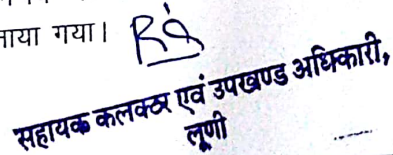 गया।
सहायक कलक्टर एवं उपखण्ड अधिकारी,
लूणी